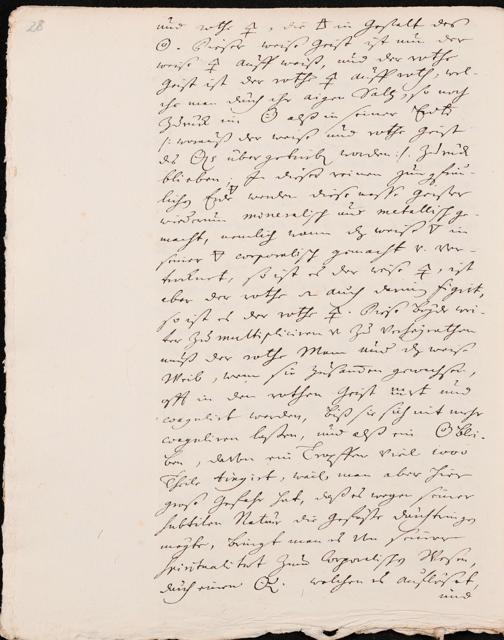 28
und rothe 🜍, die 🜂 in Gestalt des
☉. Dieser weise Geist ist nun der
weise 🜍 auff weiß, und der rothe
Geist ist der rothe 🜍 auff roth, wel-
che man durch ihr aigen Saltz, so noch
Zuruck im ☉ alß in seiner Erde
/: worauß der weise und rothe Geist
des übergetrieben worden :/ Zuruck
blieben. In dieser reinen Jungfräu-
lichen Erde werden diese nasse Geister
wiederum mineralisch und metallisch ge-
macht, nemlich wann der weise in
seiner corporalisch gemacht v. ver-
truknet, so ist es der weise 🜍, ist
aber der rothe auch darin figirt,
so ist es der rothe 🜍. Diese beyde wei-
ter Zu multipliciren v. Zu verheyrathen
muß der rothe Mann und dz weise
Weib, wann sie zusammen gewachsen,
offt in den rothen Geist und
coagulirt werden, biß sie sich nit mehr
coaguliren lassen, und alß ein Ohl blei-
ben, davon ein Tropffen viel 1000
Theile tingirt, weil man aber hier
grose Gefahr hat, daß es wegen seiner
subtilen Natur die Gefäße durchtringen
mögte, bringt man es von seiner
spiritualitet Zum Corporalischen Wesen,
durch einen welchen es aufflöset,
und